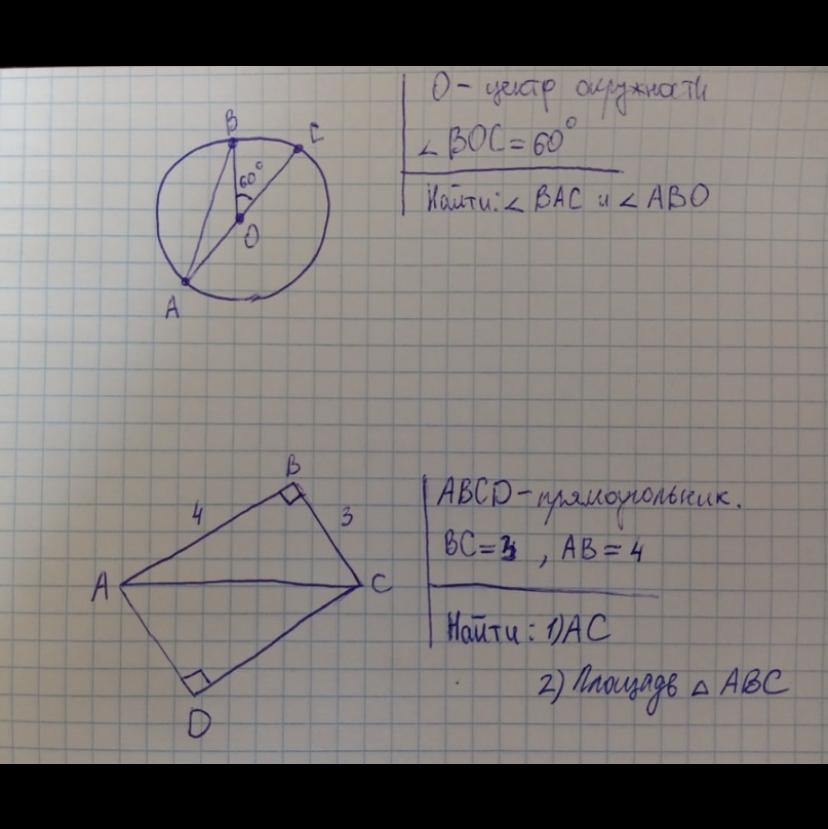 B
C
60°
O
A
O - центр окружности
∠ BOC = 60°
Найти: ∠ BAC и ∠ ABO
B
4
3
A
C
D
ABCD - прямоугольник.
BC = 3 , AB = 4
Найти: 1) AC
2) Площадь △ ABC